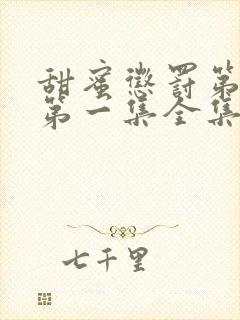 甜蜜懲罰第
第一集全集
七千里